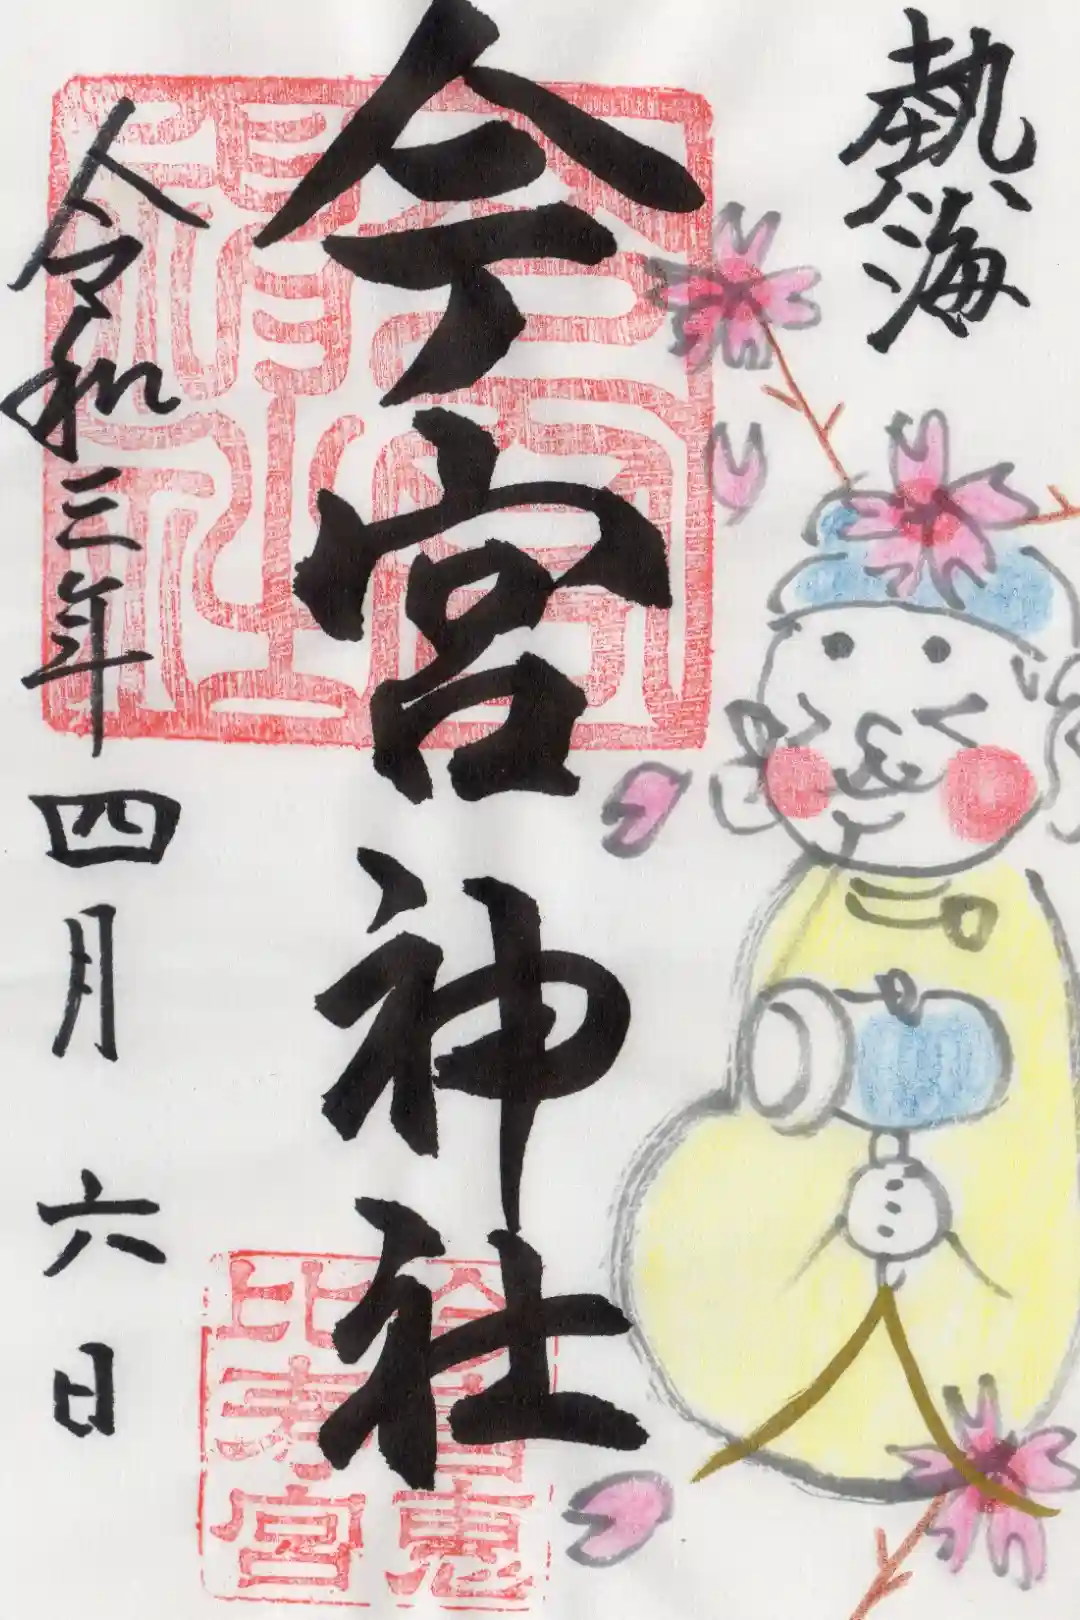 熱海
今宮神社
今宮神社
今宮恵
比寿宮
令和三年四月六日